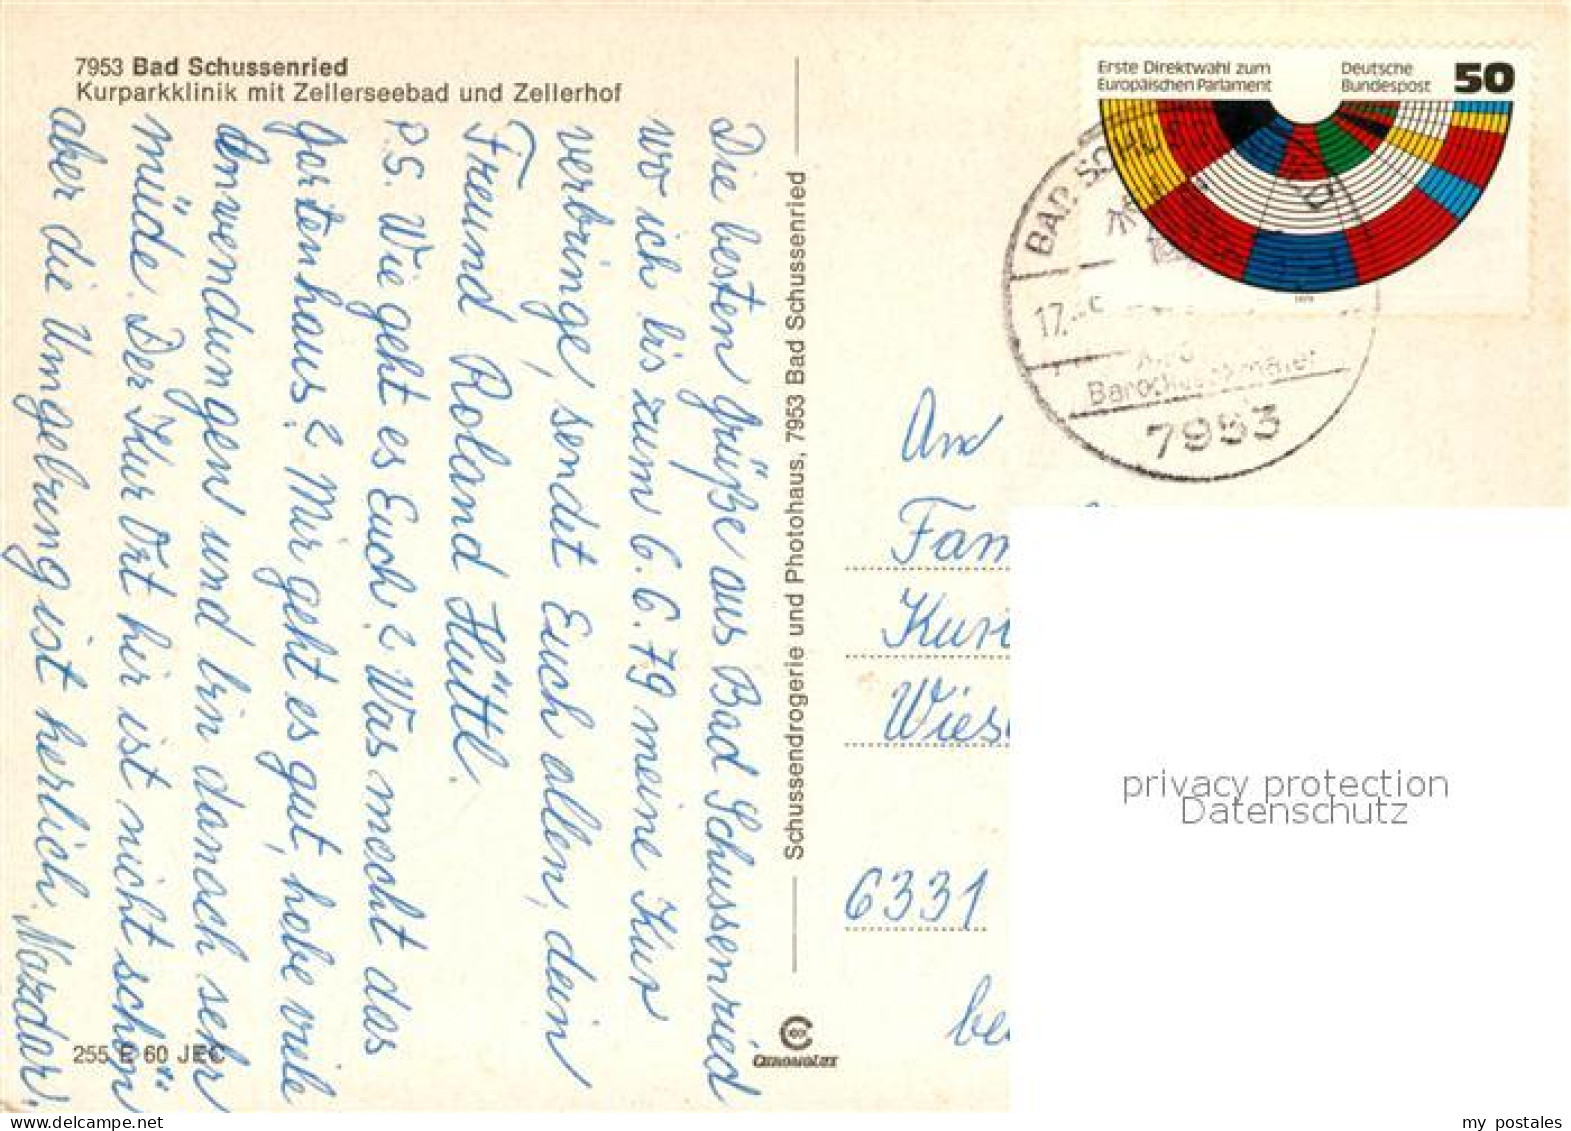 7953 Bad Schussenried
Kurparkklinik mit Zellerseebad und Zellerhof
Die besten Grüße aus Bad Schussenried
wo ich bis zum 6.6.79 meine Kur
verbringe, sendet Euch allen, dein
Freund Roland Hüttl.
P.S. Wie geht es Euch? Was macht das
Gartenhaus? Mir geht es gut, habe viele
Anwendungen und bin danach sehr
müde. Der Kur Ort hir ist nicht schön
aber die Umgebung ist herlich. Nazdar!
255 E 60 JEC
Schussendrogerie und Photohaus, 7953 Bad Schussenried
CHROMOLUX
Erste Direktwahl zum
Europäischen Parlament
Deutsche
Bundespost
50
1979
BAD SCHUSSENRIED
17.
7953
An
Fam
Wies
6331
bei
privacy protection
Datenschutz
my postales